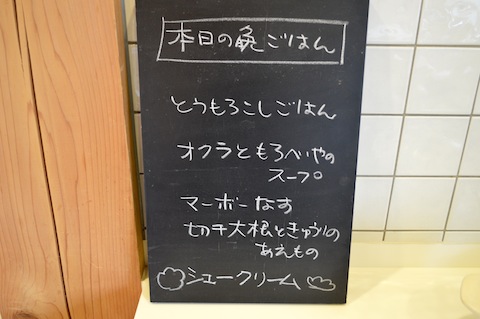 本日の晩ごはん
とうもろこしごはん
オクラともろへいやの
スープ
マーボーなす
切干大根ときゅうりの
あえもの
シュークリーム